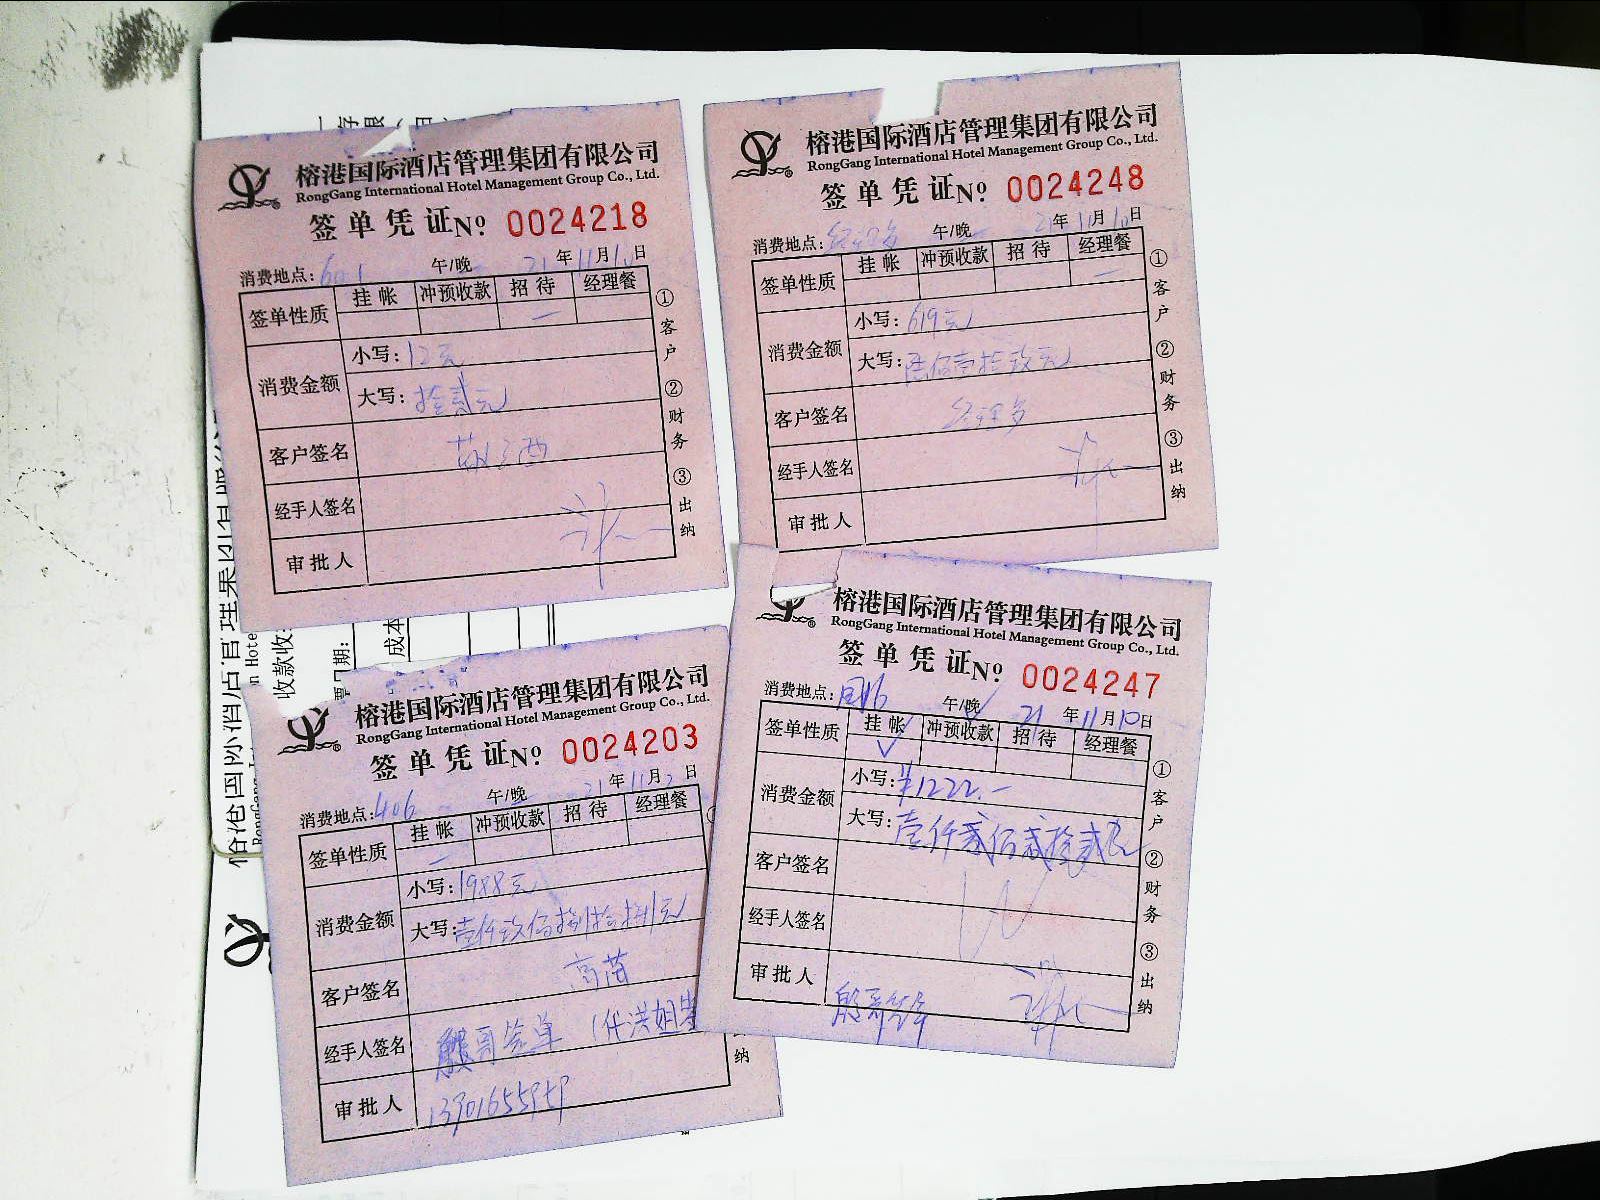 榕港国际酒店管理集团有限公司
RongGang International Hotel Management Group Co., Ltd.
签单凭证 Nº 0024218
消费地点: 601 午/晚 21年11月10日
签单性质 挂帐 冲预收款 招待 经理餐
消费金额 小写: 12元
大写: 拾贰元
客户签名
经手人签名
审批人
①客户 ②财务 ③出纳
榕港国际酒店管理集团有限公司
RongGang International Hotel Management Group Co., Ltd.
签单凭证 Nº 0024248
消费地点: 午/晚 21年11月10日
签单性质 挂帐 冲预收款 招待 经理餐
消费金额 小写: 619元
大写: 陆佰壹拾玖元
客户签名
经手人签名
审批人
①客户 ②财务 ③出纳
榕港国际酒店管理集团有限公司
RongGang International Hotel Management Group Co., Ltd.
签单凭证 Nº 0024203
消费地点: 406 午/晚 21年11月2日
签单性质 挂帐 冲预收款 招待 经理餐
消费金额 小写: 1988元
大写: 壹仟玖佰捌拾捌元
客户签名
经手人签名 哥签单 (代洪姐
审批人
纳
榕港国际酒店管理集团有限公司
RongGang International Hotel Management Group Co., Ltd.
签单凭证 Nº 0024247
消费地点: 午/晚 21年11月10日
签单性质 挂帐 冲预收款 招待 经理餐
消费金额 小写: ¥1222.-
大写: 壹仟贰佰贰拾贰元
客户签名
经手人签名
审批人
①客户 ②财务 ③出纳
收款收
成本